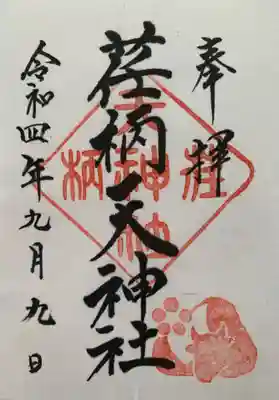 奉拝
荏柄天神社
令和四年九月九日
荏柄天神社